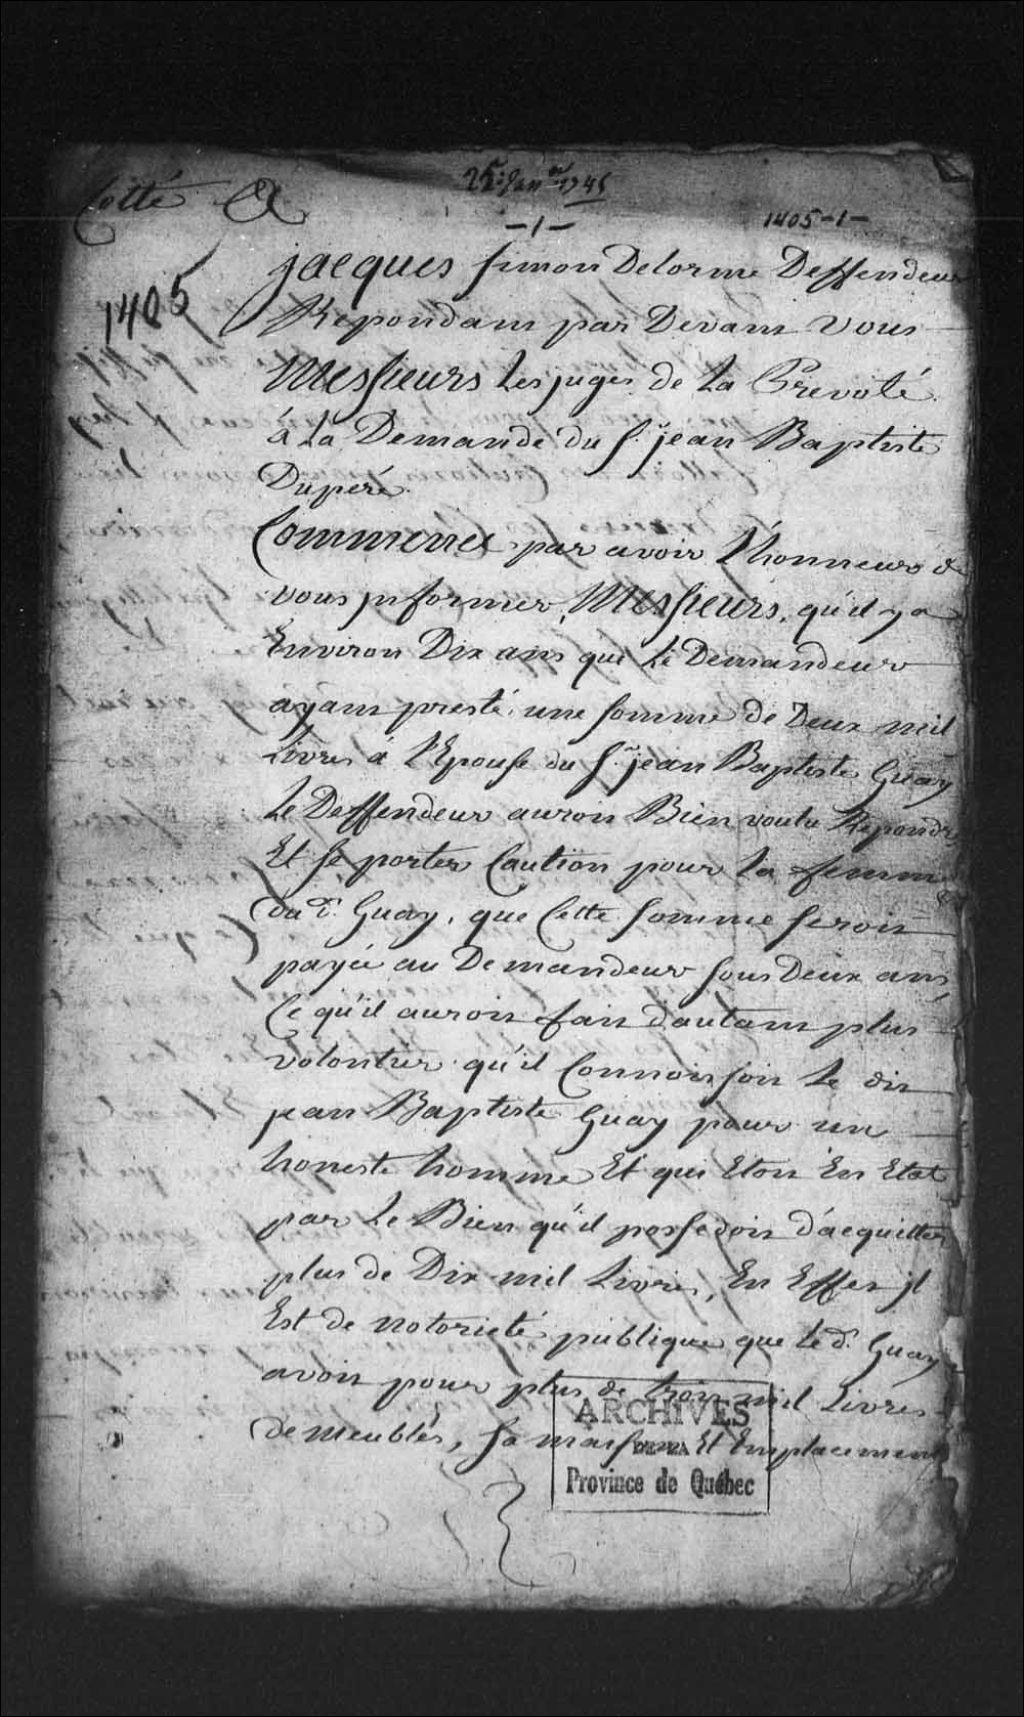 Cotté A
25e Janer 1745
-1-
1405-1-
1405
jacques simon Delorme Deffendeur
Repondant par Devant vous
Messieurs les juges de la Prevoté
á la Demande du Sr. jean Baptiste
Duperé.
Commence par avoir l'honneur de
vous jnformer, Messieurs, qu'il y a
Environ Dix ans que le Demandeur
ayant presté une somme de Deux mil
Livres á l'Epouse du Sr. jean Baptiste Guay
le Deffendeur auroit Bien voulu Repondre
Et se porter Caution pour la femme
du d. Guay, que Cette somme seroit
payée au Demandeur sous Deux ans,
Ce qu'il auroit fait d'autant plus
volontier qu'il Connoissoit le dit
jean Baptiste Guay pour un
honeste homme Et qui Etoit En Etat
par le Bien qu'il possedoit d'acquitter
plus de Dix mil Livres, En Effet jl
Est de notorieté publique que le d. Guay
avoit pour plus de trois mil Livres
de meubles, sa maison Et Emplacement
ARCHIVES
DE LA
Province de Québec